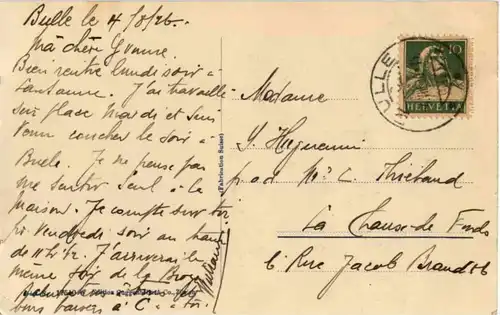 Bulle le 4/8/26.
Ma chère Yvonne
Bien rentré lundi soir à
Lausanne. J'ai travaillé
sur place mardi et suis
venu coucher le soir à
Bulle. Je ne peux pas
me sentir seul à la
maison. Je compte sur toi
vendredi soir au train
de 11h 1/2. J'arriverai le
même soir de la
bons baisers à
(Fabrication Suisse)
10
HELVETIA
BULLE
Madame
Y. Huguenin
p.a.d. Mr. C. Thiébaud
La Chaux-de-Fonds
6 Rue Jacob Brandt 6